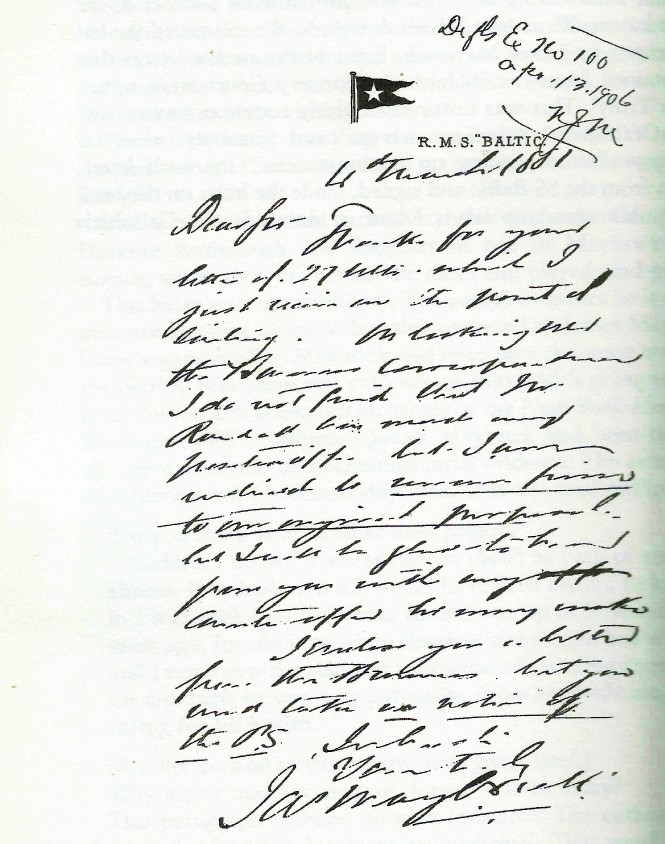 Defts Ex No 100
Apr 3. 1906
R.M.S. "BALTIC."
4th March 1881
Dear Sir Thanks for your
letter of 27 Ult which I
just receive on the point of
sailing. On looking over
the Correspondence
I do not find that Mr
Randall has made any
positive but I am
inclined to
to our original proposal
but I will be glad to hear
from you with any
offer he may make
I enclose you a letter
from the but you
need take no notice of
the P.S. In haste
Yours truly
Jas Maybrick